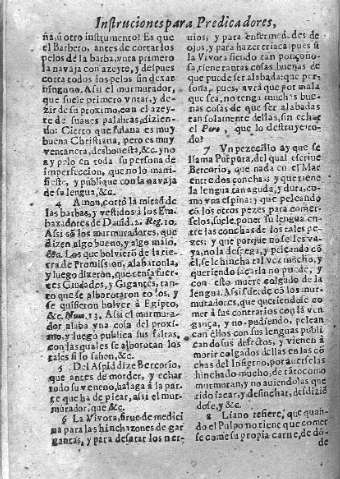 Instruciones para Predicadores,
ña, ù otro instrumento? Es que
el Barbero, antes de cortar los
pelos de la barba, vnta primero
la navaja con azeyte, y despues
corta todos los pelos sin dexar
ninguno. Assi el murmurador,
que suele primero vntar, y de-
zir de su proximo, con el azey-
te de suaues palabras, dizien-
do: Cierto que fulana es muy
buena Christiana, pero es muy
ventanera, deshonesta, &c. y no
ay pelo en toda su persona de
imperfeccion, que no lo mani-
fieste, y publique con la navaja
de su lengua, &c.
4 Amon, cortò la mitad de
las barbas, y vestidos à los Em-
baxadores de Dauid. 2. Reg. 10.
Assi sõ los murmuradores, que
dizen algo bueno, y algo malo,
&c. Los que bolvieron de la tie-
rra de Promission, alabaronla,
y luego dixeron, que tenia fuer-
tes Ciudades, y Gigantes, tan-
to que se alborotaron todos, y
se quisieron bolver à Egipto,
&c. Num. 13. Assi el murmura-
dor alaba vna cosa del proxi-
mo, y luego publica sus faltas,
con las quales se alborotan los
tales si lo saben, &c.
5 Del Aspid dize Bercorio,
que antes de morder, y echar
todo su veneno, halaga à la par-
te que ha de picar, assi el mur-
murador, que &c.
6 La Vivora, sirue de medici
na para las hinchazones de gar-
gantas, y para desatar los ner-
uios, y para enfermedades de
ojos, y para hazer triaca: pues si
la Vivora siendo tan ponçoño-
sa, tiene tantas cosas buenas de
que puede ser alabada: que per-
sona, pues, avrà que por mala
que sea, no tenga muchas bue-
nas cosas de que ser alabadas
tan solamente dellas, sin echar
el Pero, que lo destruye to-
do?
7 Vn pezecillo ay que se
llama Purpura, del qual escriue
Bercorio, que nada en el Mar
entre dos conchas, y que tiene
la lengua tan aguda, y dura, co-
mo vna espina: y que peleando
cõ los otros pezes para comer-
selos, suele poner su lengua en-
tre las conchas de los tales pe-
zes: y que porque no se les va-
ya, no la despega, y peleando cõ
el, se le hincha tal vez mucho, y
queriendo sacarla no puede, y
con esto muere colgado de la
lengua. Assi sucede cõ los mur-
muradores, que queriendo co-
mer à sus contrarios con la vẽ-
gança, y no pudiendo, pelean
con ellos con sus lenguas publi
cando sus defectos, y vienen à
morir colgados dellas en las cõ
chas del Infierno, por averseles
hinchado mucho, de tãto como
murmuran, y no auiendolas que
rido sacar, y deshinchar, desdiziẽ
dose, y &c.
8 Eliano refiere, que quan-
do el Pulpo no tiene que comer
se come su propia carne, de dõ-
de